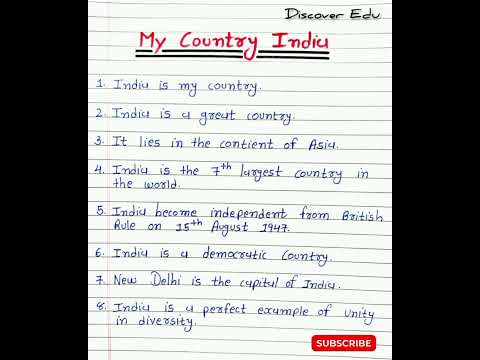 Discover Edu
My Country India
1. India is my country.
2. India is a great country.
3. It lies in the contient of Asia.
4. India is the 7th largest country in
the world.
5. India become independent from British
Rule on 15th August 1947.
6. India is a democratic country.
7. New Delhi is the capital of India.
8. India is a perfect example of unity
in diversity.
SUBSCRIBE